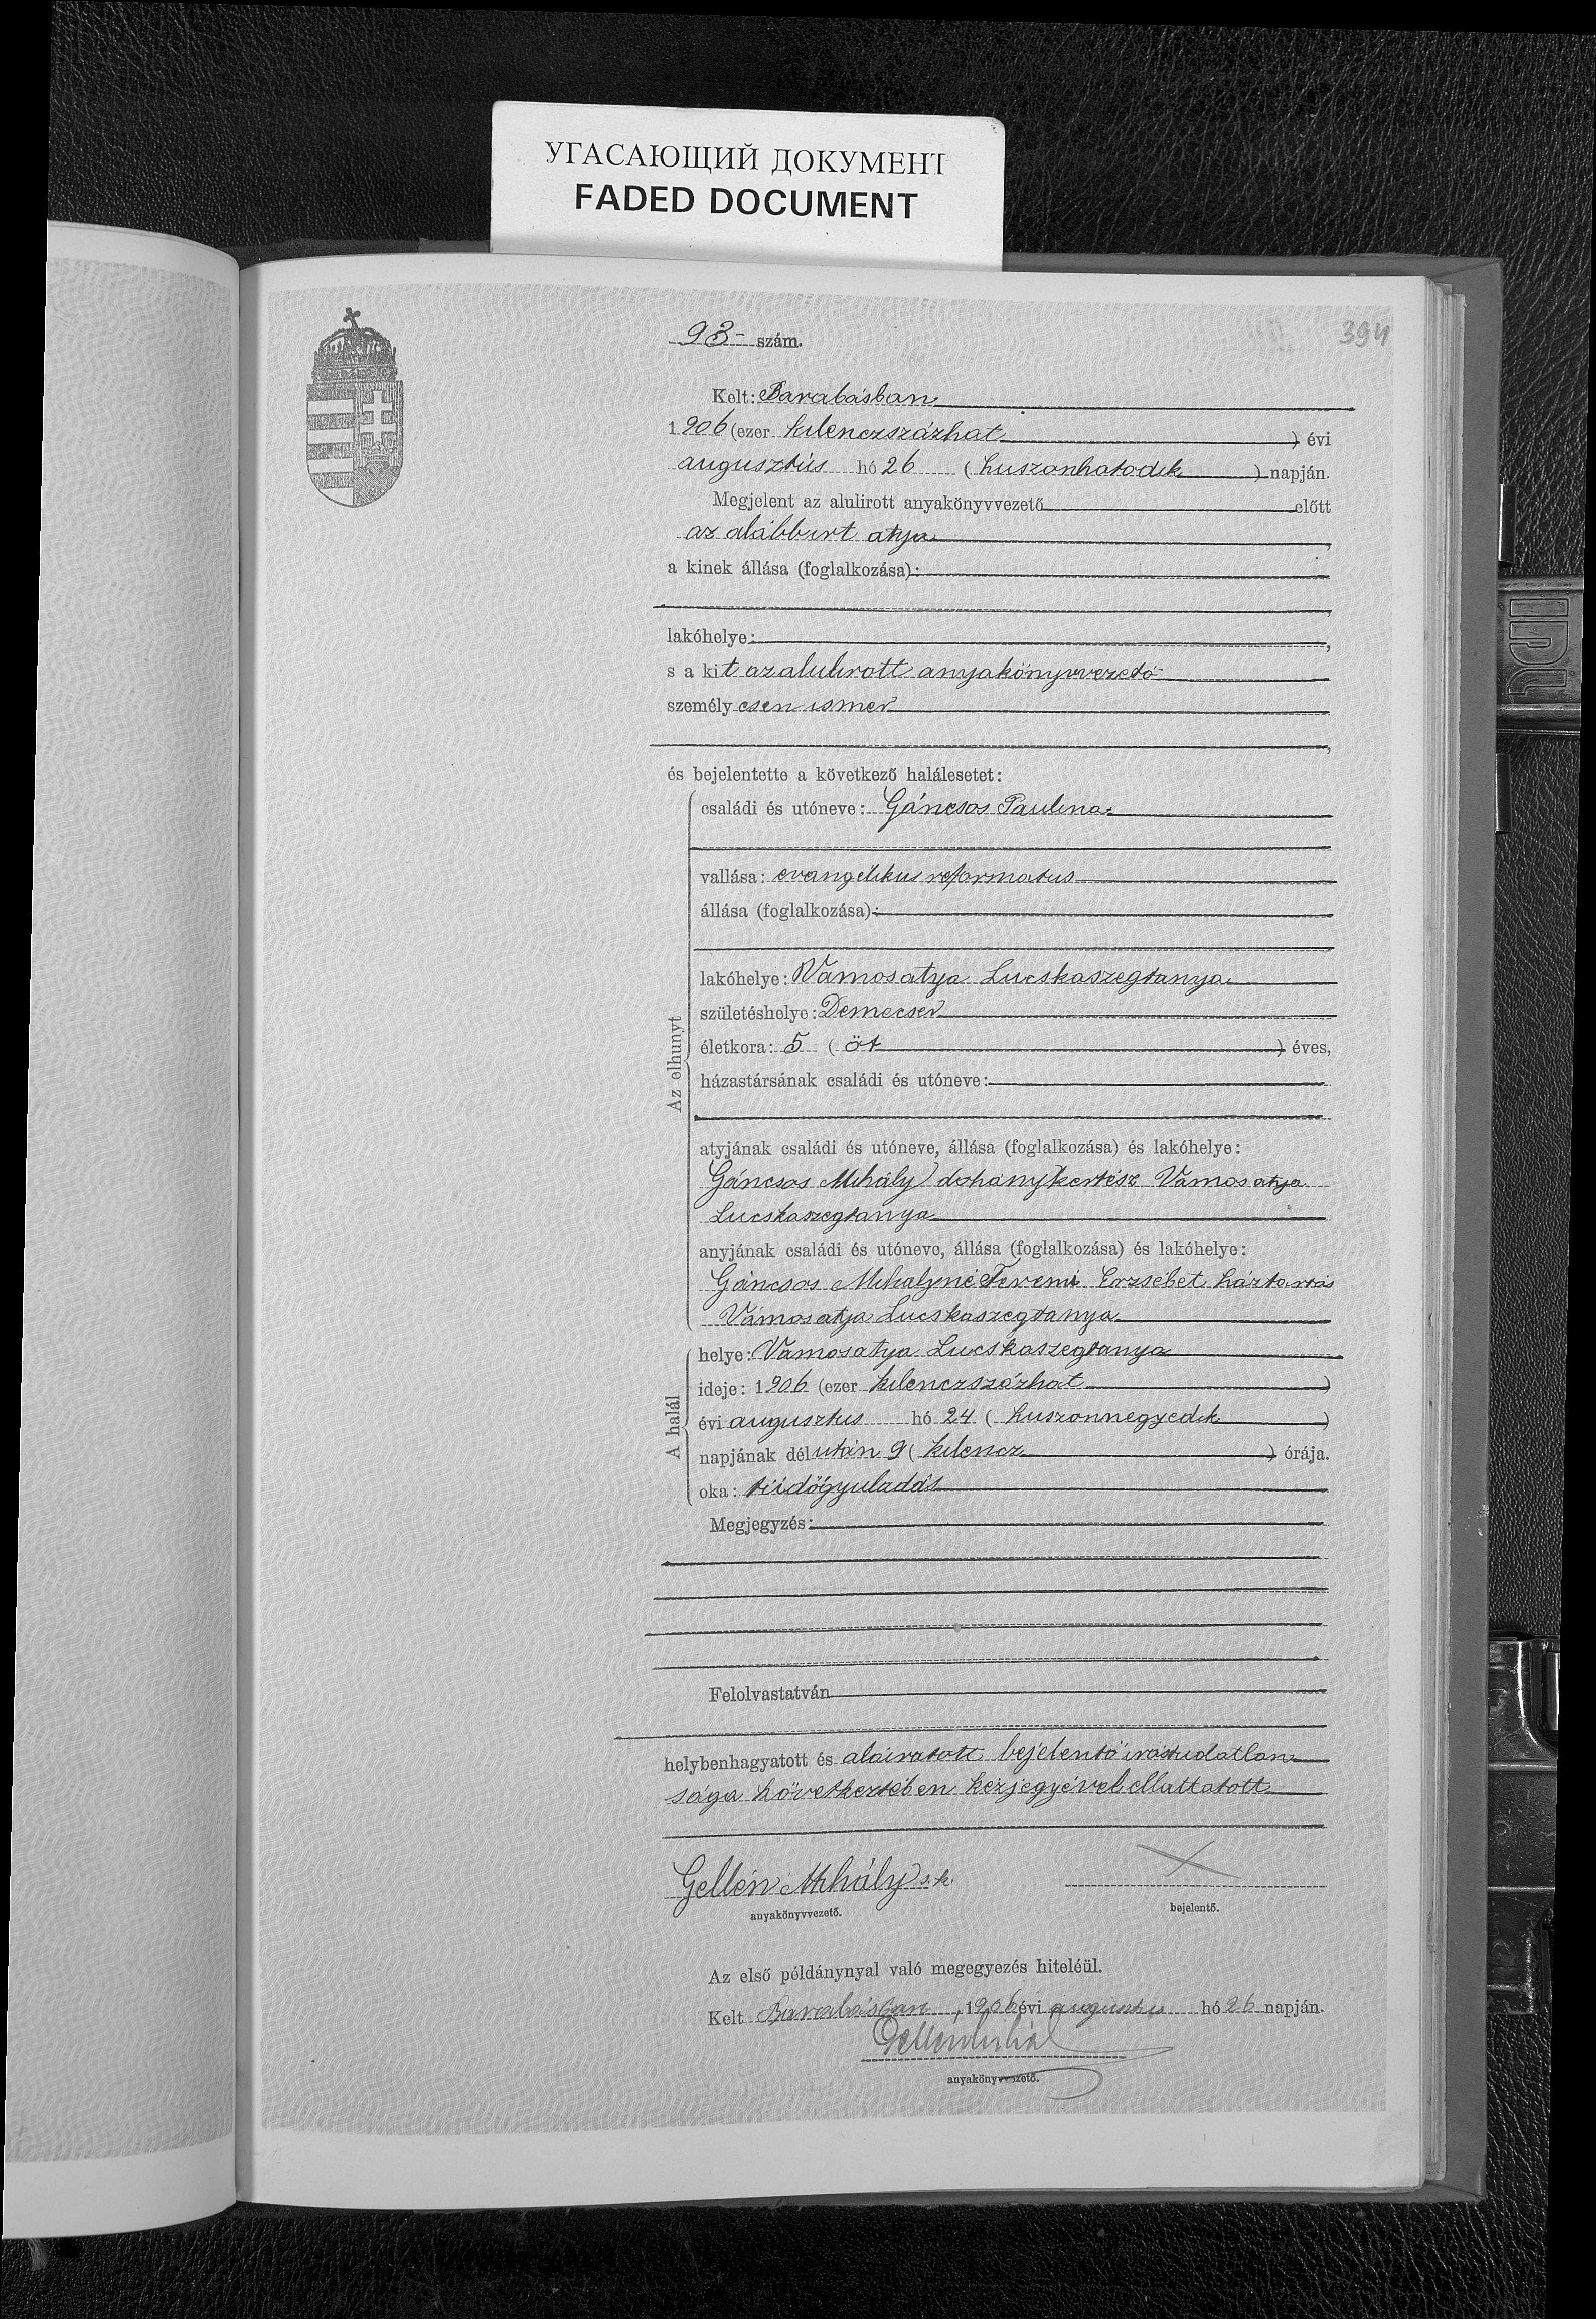 УГАСАЮЩИЙ ДОКУМЕНТ
FADED DOCUMENT
394
93 szám.
Kelt: Barabásban
1906 (ezer kilenczszázhat ) évi
augusztús hó 26 ( huszonhatodik ) napján.
Megjelent az alulirott anyakönyvvezető előtt
az alábbirt atya,
a kinek állása (foglalkozása):
lakóhelye:
s a kit az alulirott anyakönyvvezető
személyesen ismer
és bejelentette a következő halálesetet:
Az elhunyt
családi és utóneve: Gáncsos Paulina
vallása: evangélikus reformatus
állása (foglalkozása):
lakóhelye: Vámosatya Lucskaszegtanya
születéshelye: Demecser
életkora: 5 ( öt ) éves,
házastársának családi és utóneve:
atyjának családi és utóneve, állása (foglalkozása) és lakóhelye:
Gáncsos Mihály dohánykertész Vámosatya
Lucskaszegtanya
anyjának családi és utóneve, állása (foglalkozása) és lakóhelye:
Gáncsos Mihályné Erzsébet háztartás
Vámosatya Lucskaszegtanya
A halál
helye: Vámosatya Lucskaszegtanya
ideje: 1906 (ezer kilenczszázhat )
évi augusztus hó 24 ( huszonnegyedik )
napjának délután 9 ( kilencz ) órája.
oka: tüdőgyuladás
Megjegyzés:
Felolvastatván
helybenhagyatott és aláiratott bejelentő irástudatlan
sága következtében kézjegyével ellattatott
Gellén Mihály s.k.
anyakönyvvezető.
bejelentő.
Az első példánynyal való megegyezés hiteléül.
Kelt Barabásban, 1906 évi augusztus hó 26 napján.
Gellén Mihály
anyakönyvvezető.